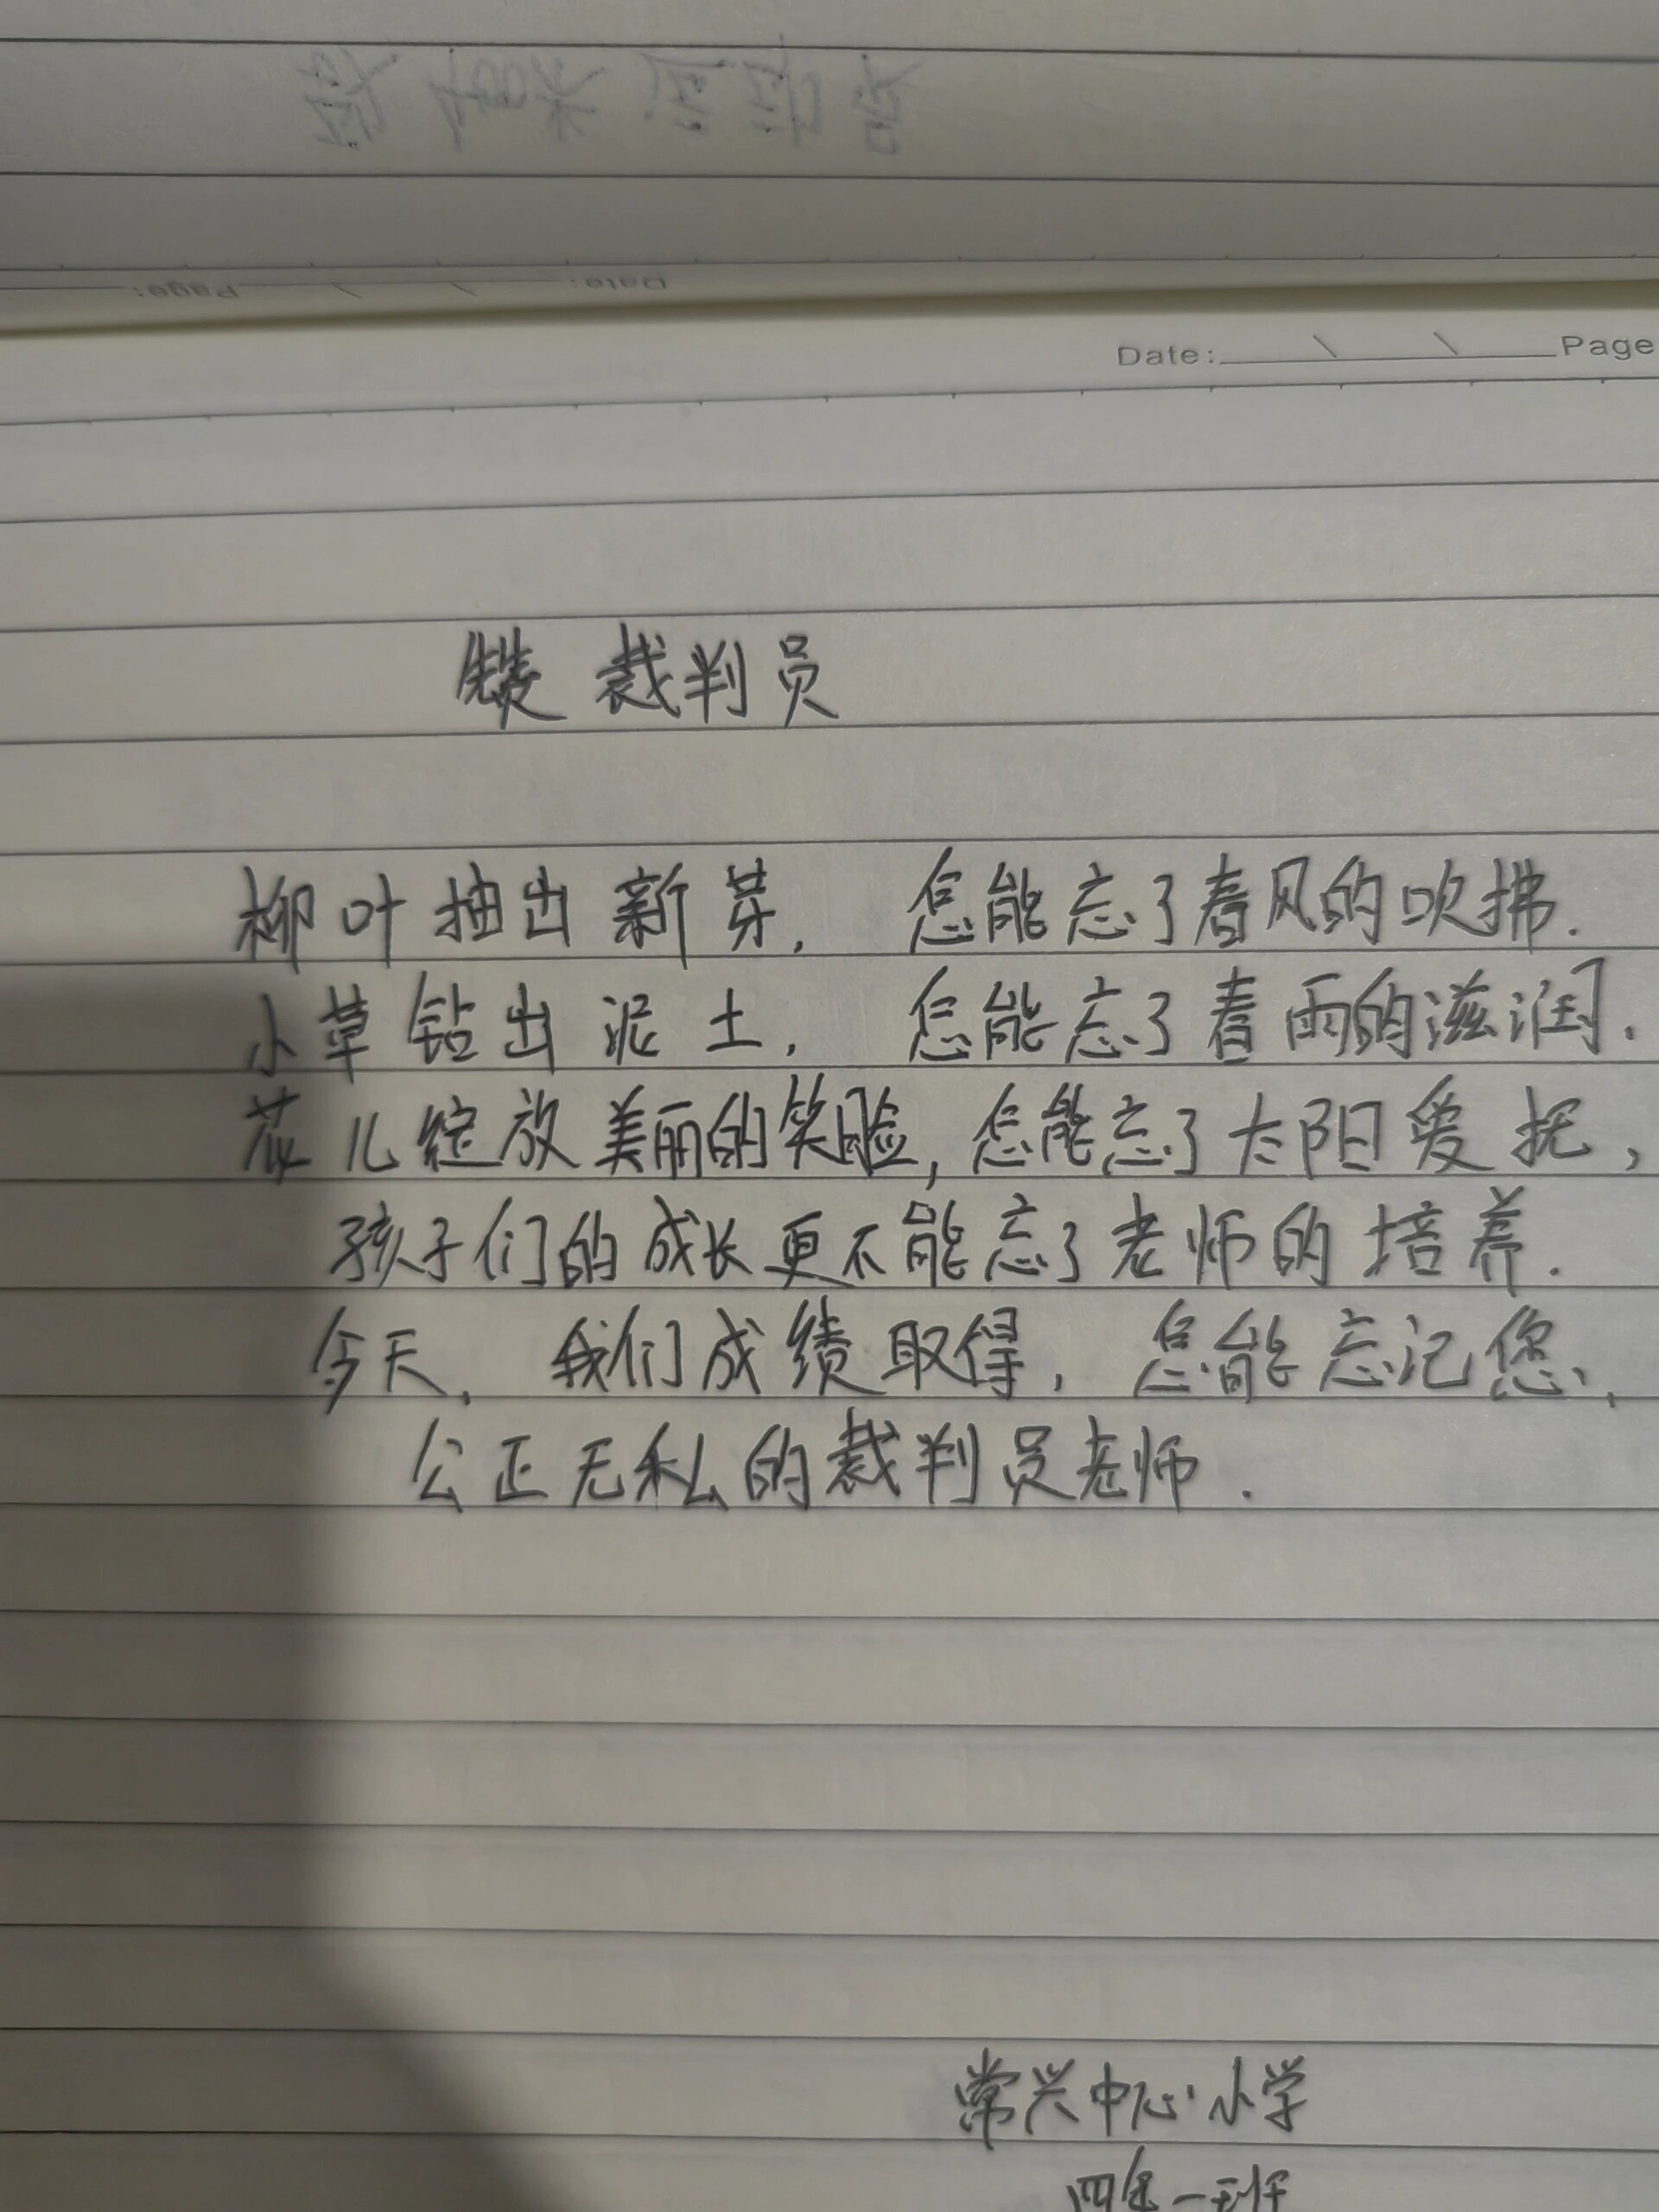 致400米运动员
Date: Page:
Date: Page
裁判员
柳叶抽出新芽, 怎能忘了春风的吹拂.
小草钻出泥土, 怎能忘了春雨的滋润.
花儿绽放美丽的笑脸, 怎能忘了太阳爱抚,
孩子们的成长更不能忘了老师的培养.
今天, 我们成绩取得, 怎能忘记您,
公正无私的裁判员老师.
常兴中心小学
四年一班